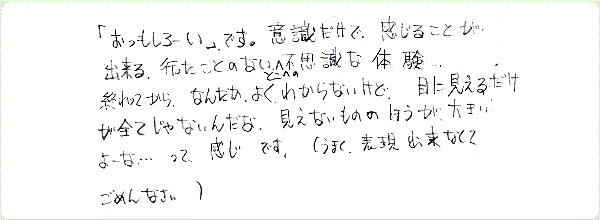 「おっもしろーい」です。意識だけで、感じることが
出来る、行たことのない所への不思議な体験…
終わってから、なんだか、よくわからないけど、目に見えるだけ
が全てじゃないんだな、見えないもののほうが、大きい
よーな…って、感じです。(うまく、表現出来なくて
ごめんなさい)